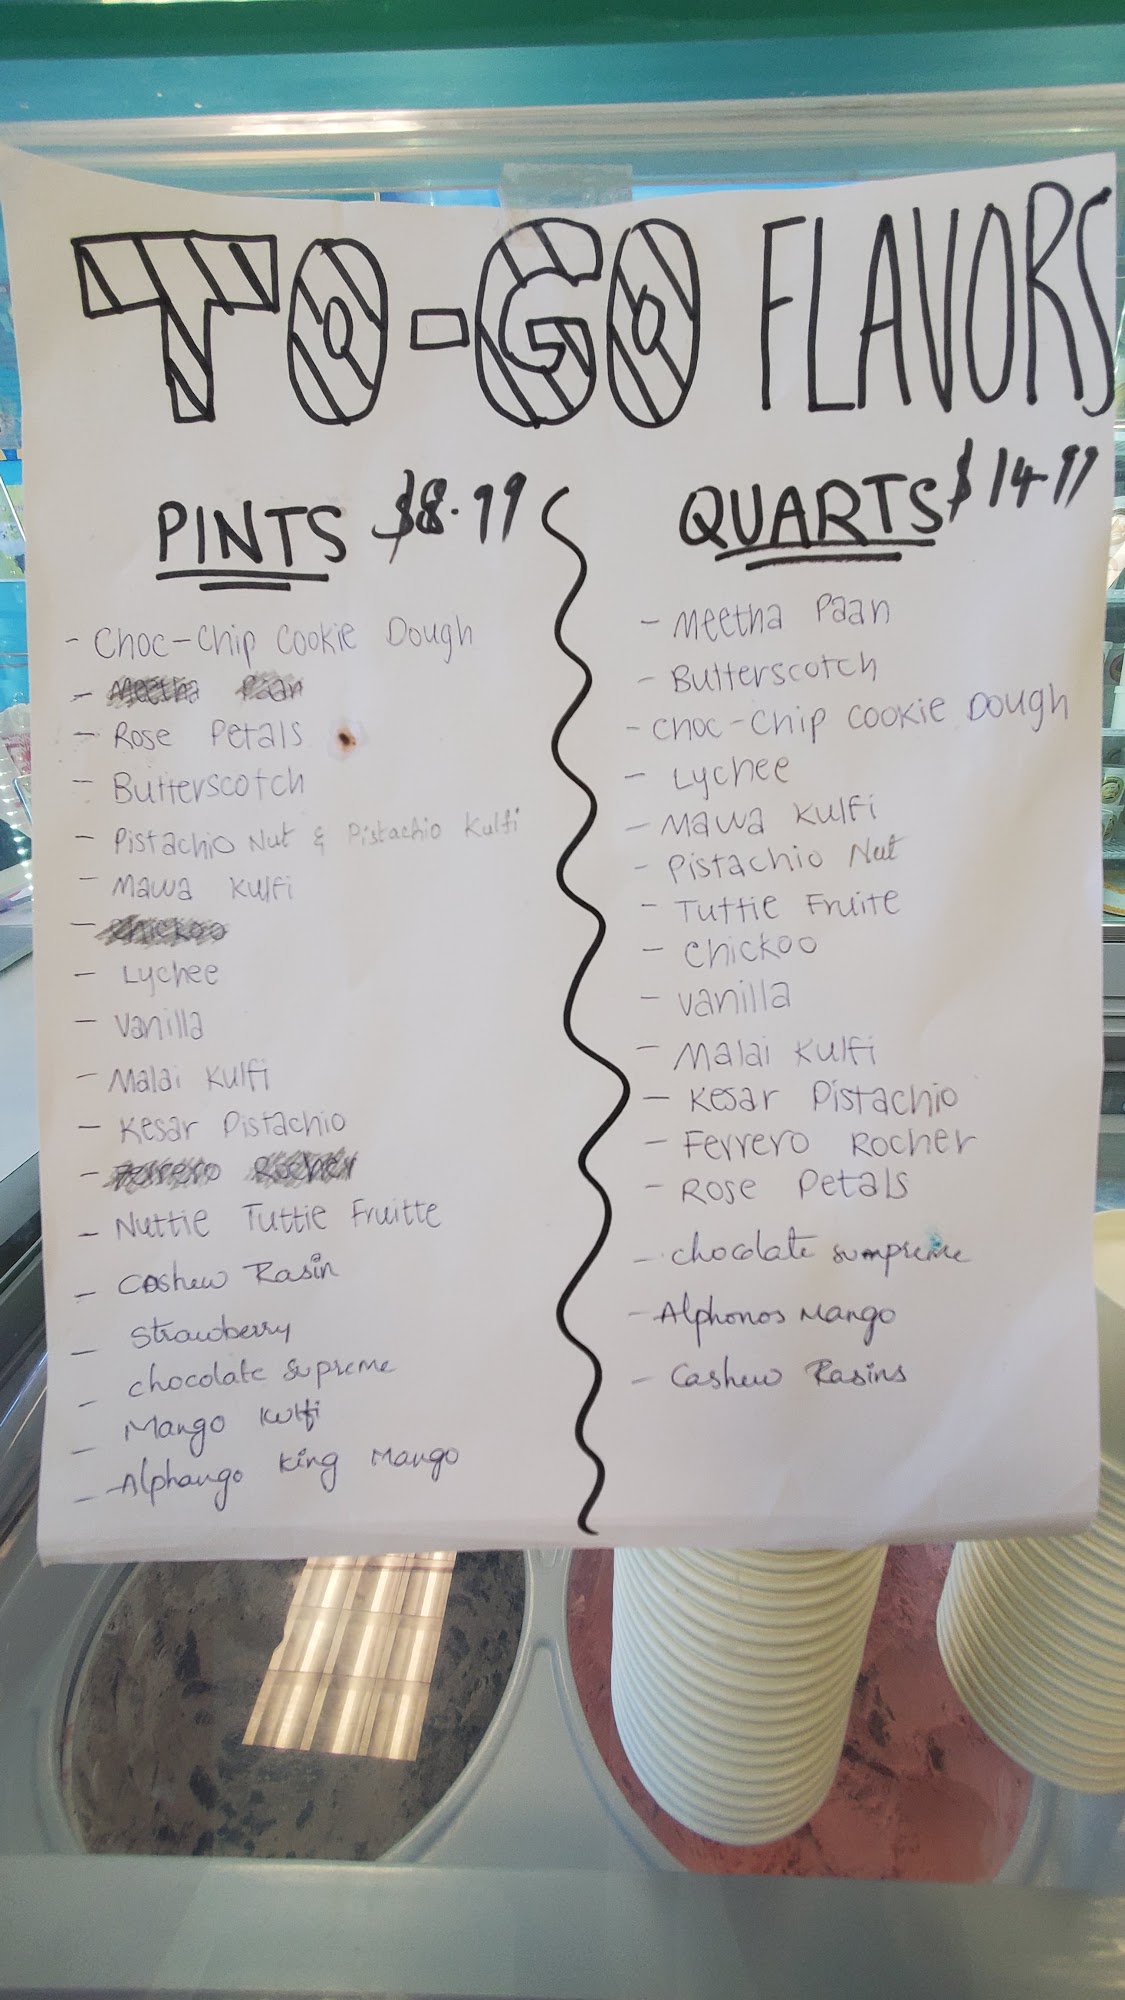 TO-GO FLAVORS
PINTS $8.99
- Choc-Chip Cookie Dough
- Meetha Paan
- Rose Petals
- Butterscotch
- Pistachio Nut & Pistachio Kulfi
- Mawa Kulfi
- Chickoo
- Lychee
- Vanilla
- Malai Kulfi
- Kesar Pistachio
- Ferrero Rocher
- Nuttie Tuttie Fruitte
- Cashew Rasin
- Strawberry
- chocolate Supreme
- Mango Kulfi
- Alphango King Mango
QUARTS $14.99
- Meetha Paan
- Butterscotch
- Choc-Chip Cookie Dough
- Lychee
- Mawa Kulfi
- Pistachio Nut
- Tuttie Fruite
- Chickoo
- Vanilla
- Malai Kulfi
- Kesar Pistachio
- Ferrero Rocher
- Rose Petals
- chocolate sumpreme
- Alphonos Mango
- Cashew Rasins